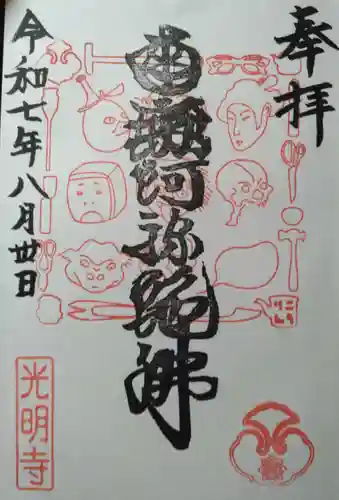 奉拝
南無阿弥陀佛
令和七年八月丗日
光明寺